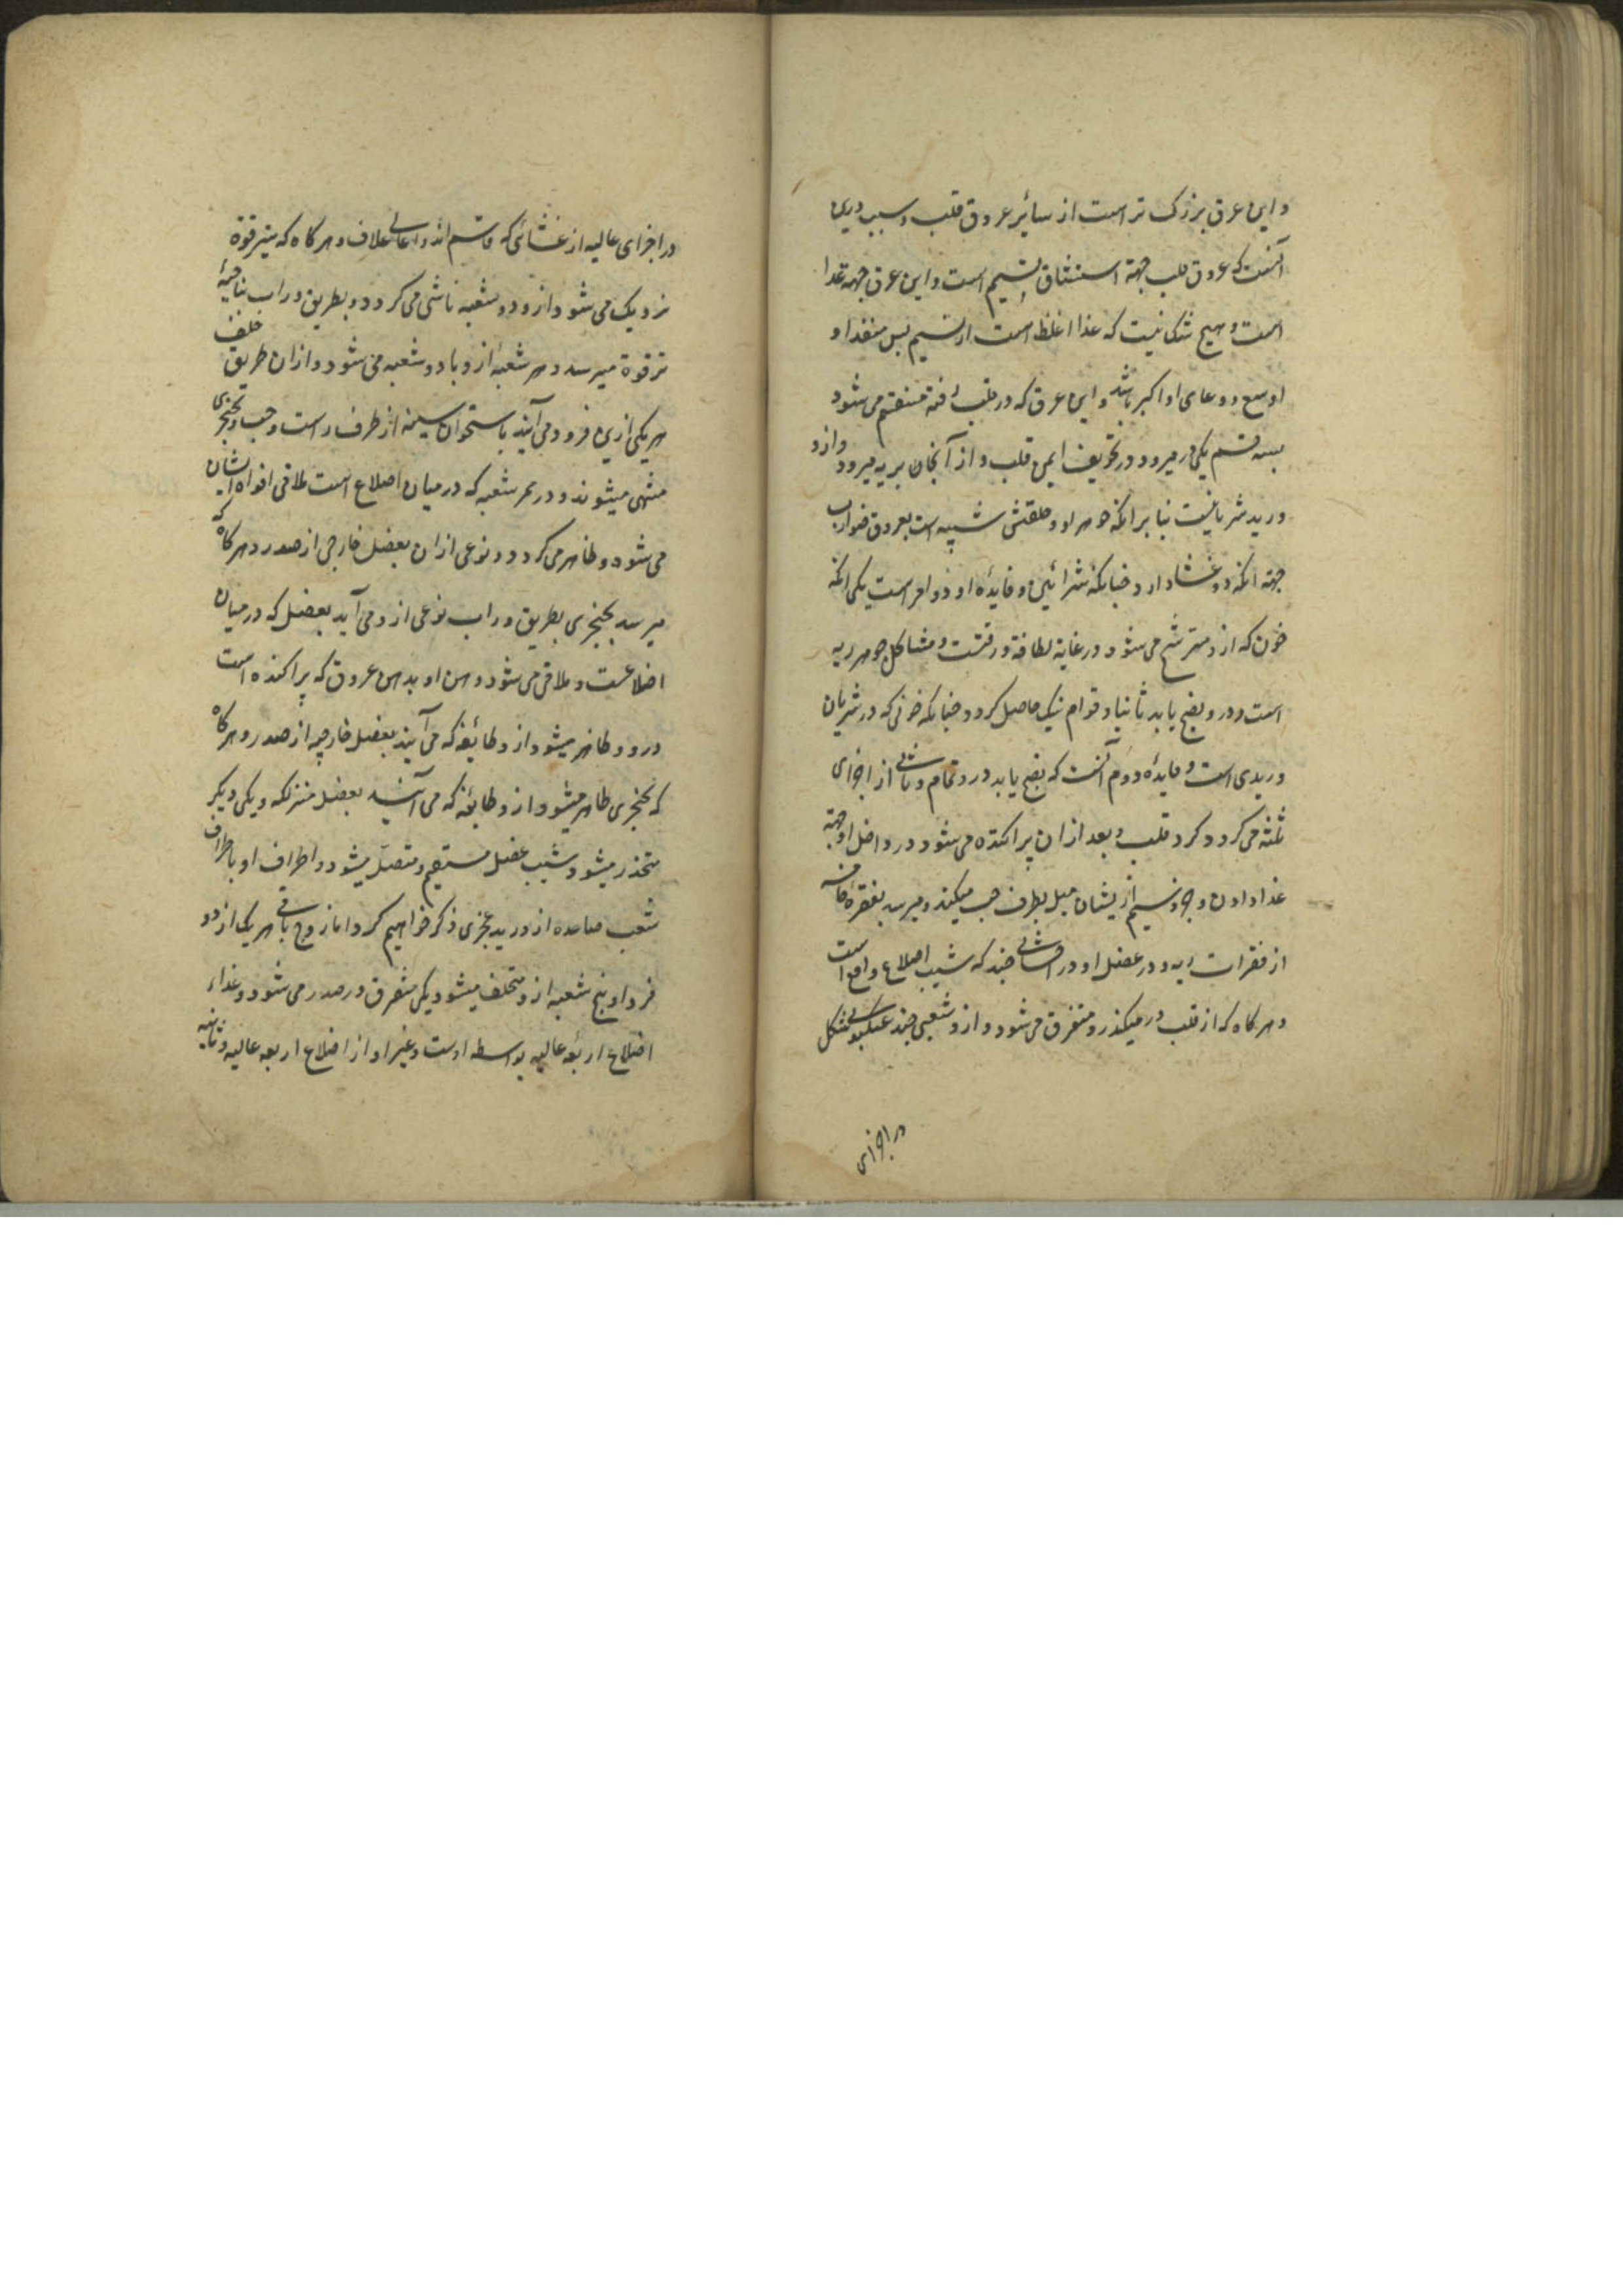 و این عرق بزرک تر است از سائر عروق قلب و سبب درین
آنست که عروق قلب جهة استنشاق نسیم است و این عرق جهة غذا
است و هیچ شک نیست که غذا اغلظ است از نسیم بس منفذ او
اوسع و وعای او اکبر باشد و این عرق که در قلب رفته منقسم می شود
بسه قسم یکی در میرود در تجویف ایمن قلب و از آنجان بریه میرود و ازو
ورید شریانیست بنا بر انکه جوهر او و خلقتش شبیه است بعروق ضوارب
جهة انکه دو غشا دارد چنانکه شرائین و فایدهٔ او دو امر است یکی انکه
خون که ازو مترشح می شود در غایة لطافة و رقتست و مشاکل جوهر ریه
است و درو نضج یابد ثانیا و قوام نیک حاصل کرد چنانکه خونی که در شریان
وریدی است و فایدهٔ دوم آنست که نضج یابد درو تمام و ثانی از اجزای
ثلثه می کردد کرد قلب و بعد ازان پراکنده می شود در داخل او جهة
غذا دادن و چون نسیم ازیشان میل بطرف چپ میکند و میرسد بفقرهٔ خامسه
از فقرات ریه و در عضل او در احشائی چند که شیب اضلاع واقع است
و هرکاه که از قلب در میکذرد متفرق می شود و ازو شعبی چند عنکبوتی شکل
در اجزای
در اجزای عالیه از غشائی که قاسم اند و اعالی غلاف و هرکاه که بترقوة
نزدیک می شود ازو دو شعبه ناشی می کردد و بطریق وراب بناحیهٔ
ترقوة میرسد و هر شعبهٔ ازو با دو شعبه می شود و ازان طریق خلف
هر یکی ازین فرود می آیند باستخوان سینه از طرف راست و چپ و بخنجری
منتهی میشوند و در ممر شعبه که در میان اضلاع است ملاقی افواه ایشان
می شود و ظاهر می کردد و نوعی ازان بعضل خارجی از صدر و هرکاه که
میرسد بخنجری بطریق وراب نوعی ازو می آید بعضل که در میان
اضلاعست و ملاقی می شود دهن او بدهن عروق که پراکنده است
درو و ظاهر میشود ازو طائفه که می آیند بعضل خارجه از صدر و هرکاه
که بخنجری ظاهر میشود ازو طایفه که می آیند بعضل متزلکه و یکی دیکر
منحدر میشود شیب عضل مستقیم و متصل میشود و اطراف او باطراف
شعب صاعده از ورید عجزی ذکر خواهیم کرد اما زوج باقی هر یک از دو
فرد او پنج شعبه ازو متخلف میشود یکی متفرق در صدر می شود و غذاء
اضلاع اربعهٔ عالیه بواسطه اوست و غیر او از اضلاع اربعه عالیه و ثانیه